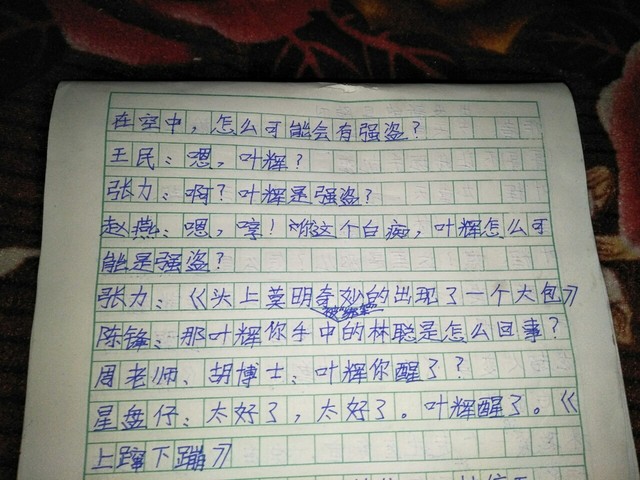 在空中，怎么可能会有强盗？
王民：嗯，叶辉？
张力：啊？叶辉是强盗？
赵燕：嗯，哼！你这个白痴，叶辉怎么可
能是强盗？
张力：《头上莫明奇妙的出现了一个大包》
陈锋：那叶辉你手中的林聪是怎么回事？
周老师、胡博士：叶辉你醒了？
星盘仔：太好了，太好了。叶辉醒了。《
上蹿下蹦》